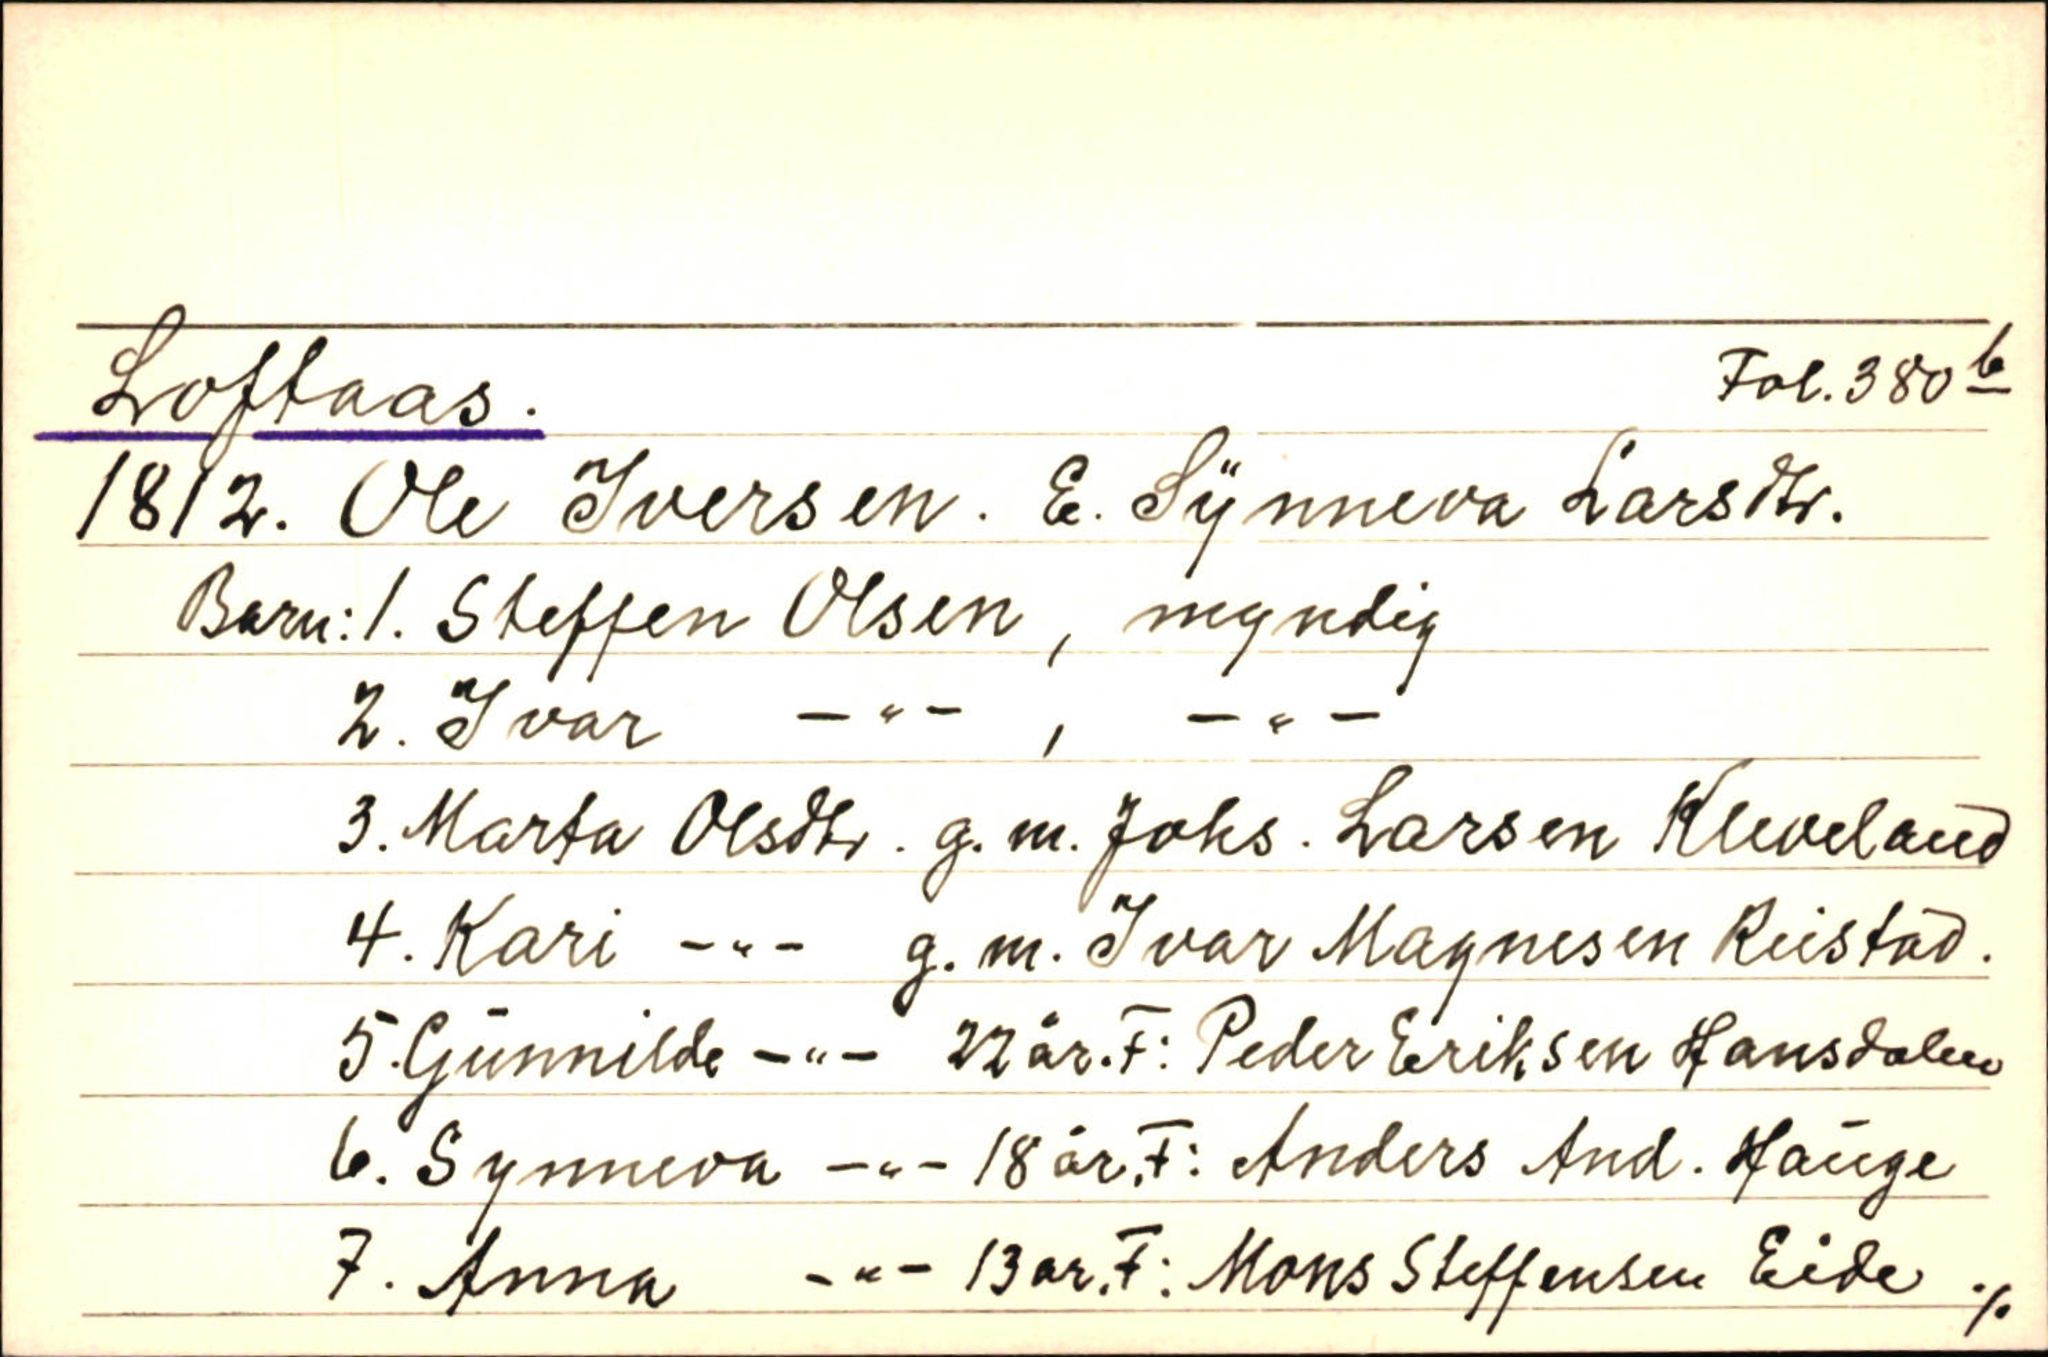 Loftaas. Fol. 380 b
1812. Ole Iversen. E. Sÿnneva Larsdtr.
Barn: 1. Steffen Olsen, myndig
2. Ivar -"- , -"-
3. Marta Olsdtr. g.m. Johs. Larsen Kleveland
4. Kari -"- g.m. Ivar Magnesen Reistad.
5. Gunnilde -"- 22 år. F: Peder Eriksen Hansdalen
6. Synneva -"- 18 år. F: Anders And. Hauge
7. Anna -"- 13 ar. F: Mons Steffensen Eide ./.